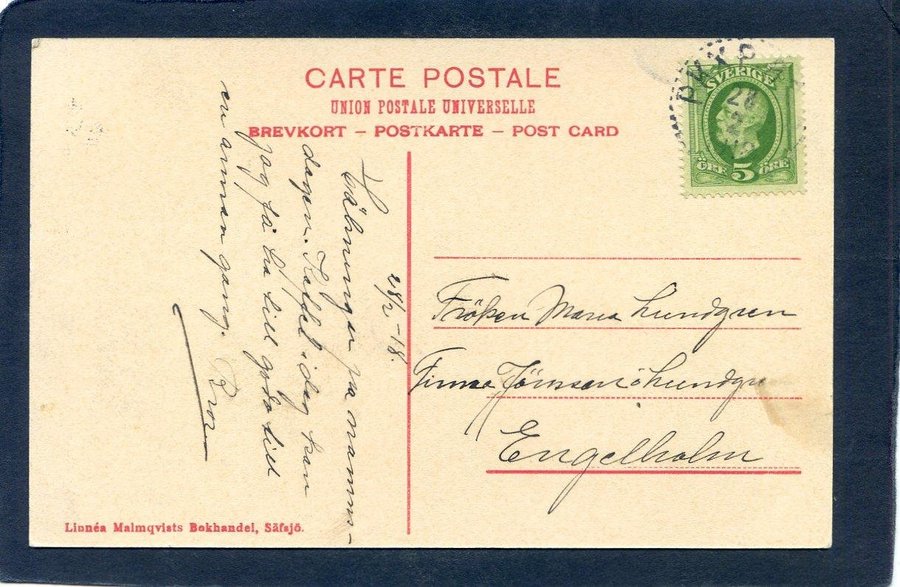 CARTE POSTALE
UNION POSTALE UNIVERSELLE
BREVKORT – POSTKARTE – POST CARD
SVERIGE
ÖRE 5 ÖRE
PKXP
28/2 -18.
Hälsningar på namns-
dagen. Kaffet idag kan
jag få ha till godo till
en annan gång. Bror
Fröken Maria Lundgren
Firma Jönsson & Lundgre
Engelholm
Linnéa Malmqvists Bokhandel, Säfsjö.